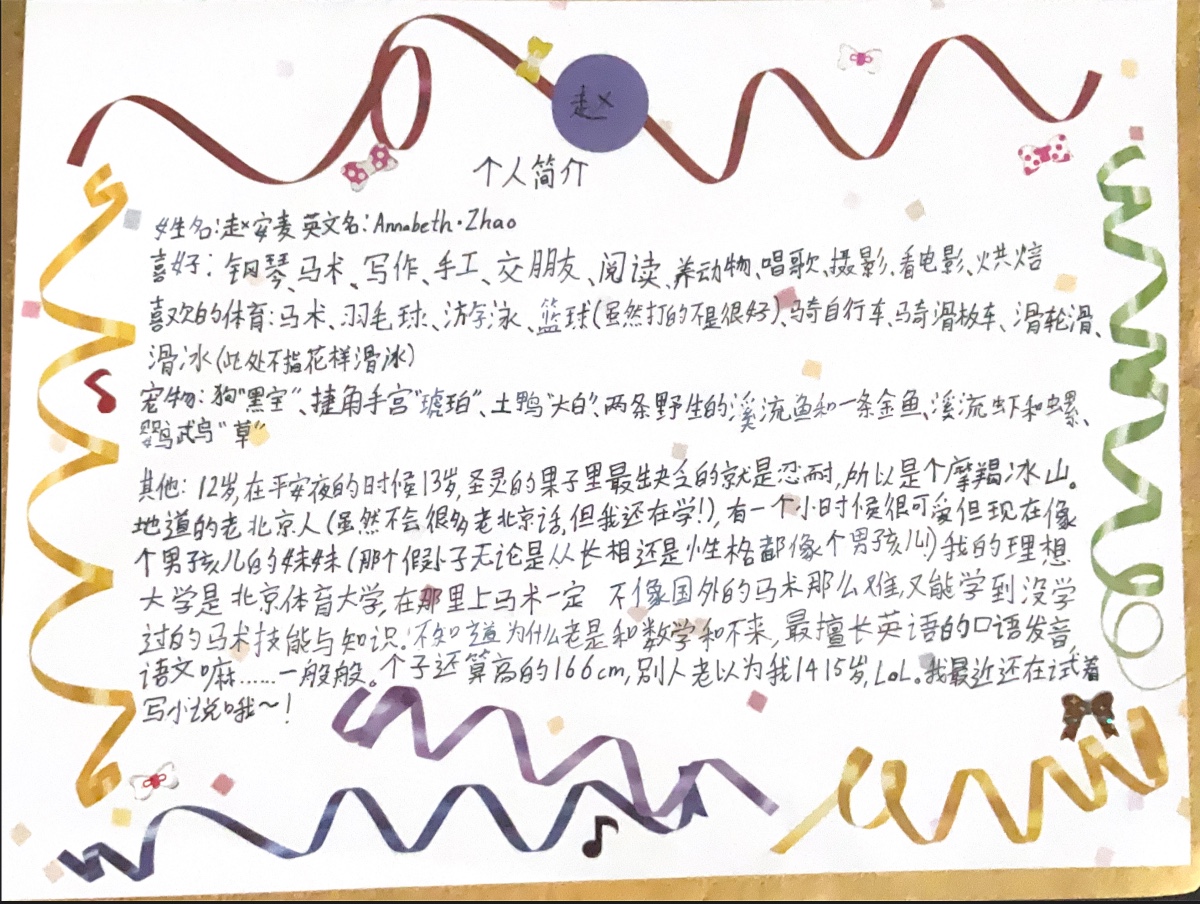 赵
个人简介
姓名:赵安麦 英文名:Annabeth·Zhao
喜好:钢琴、马术、写作、手工、交朋友、阅读、养动物、唱歌、摄影、看电影、烘焙
喜欢的体育:马术、羽毛球、游泳、篮球(虽然打的不是很好)、骑自行车、骑滑板车、滑轮滑、
滑冰(此处不指花样滑冰)
宠物:狗“黑宝”、捷角守宫“琥珀”、土鸭“大白”、两条野生的溪流鱼和一条金鱼、溪流虾和螺、
鹦鹉“草”
其他:12岁,在平安夜的时候13岁,圣灵的果子里最缺乏的就是忍耐,所以是个摩羯冰山。
地道的老北京人(虽然不会很多老北京话,但我还在学!),有一个小时候很可爱但现在像
个男孩儿的妹妹(那个假小子无论是从长相还是性格都像个男孩儿!)我的理想
大学是北京体育大学,在那里上马术一定 不像国外的马术那么难,又能学到没学
过的马术技能与知识.不知道为什么老是和数学和不来,最擅长英语的口语发音,
语文嘛……一般般。个子还算高的166cm,别人老以为我14 15岁,LoL.我最近还在试着
写小说哦~!